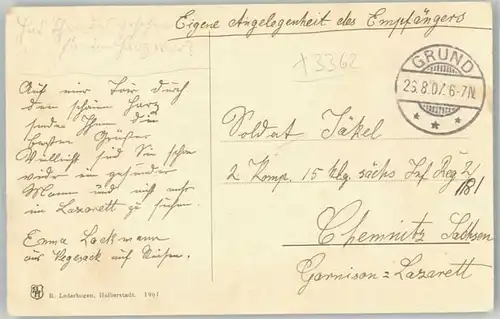 Eigene Angelegenheit des Empfängers
+3362
GRUND
23.8.07. 6-7N.
Auf einer Tour durch
den schönen Harz
sende Ihnen die
besten Grüße.
Vielleicht sind Sie schon
wider ein gesunder
Mann und nicht mehr
im Lazarett zu suchen.
Emma Lackmann
aus Vegesack auf Reisen.
Soldat Jäkel
2 Komp. 15 klg. sächs Inf Reg 2/
181
Chemnitz Sachsen
Garnison-Lazarett
R. Lederbogen, Halberstadt. 1961